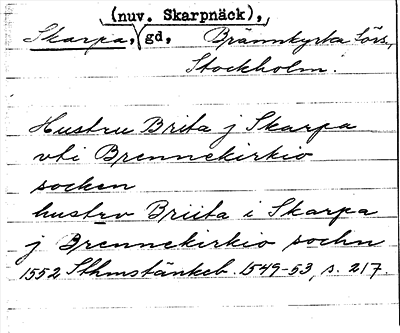 (nuv. Skarpnäck),
Skarpa, gd, Brännkyrka förs.,
Stockholm.
Hustru Brita j Skarpa
vti Brennekirkio
socken
hustrv Briita i Skarpa
j Brennekirkio sochn
1552 Sthmstänkeb. 1549-53, s. 217.